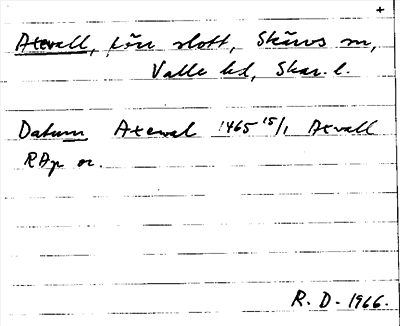 +
Axevall, förr slott, Skärvs sn,
Valle hd, Skar. l.
Datum Axewal 1465 15/1 Axvall
RAp or.
R. D. 1966.